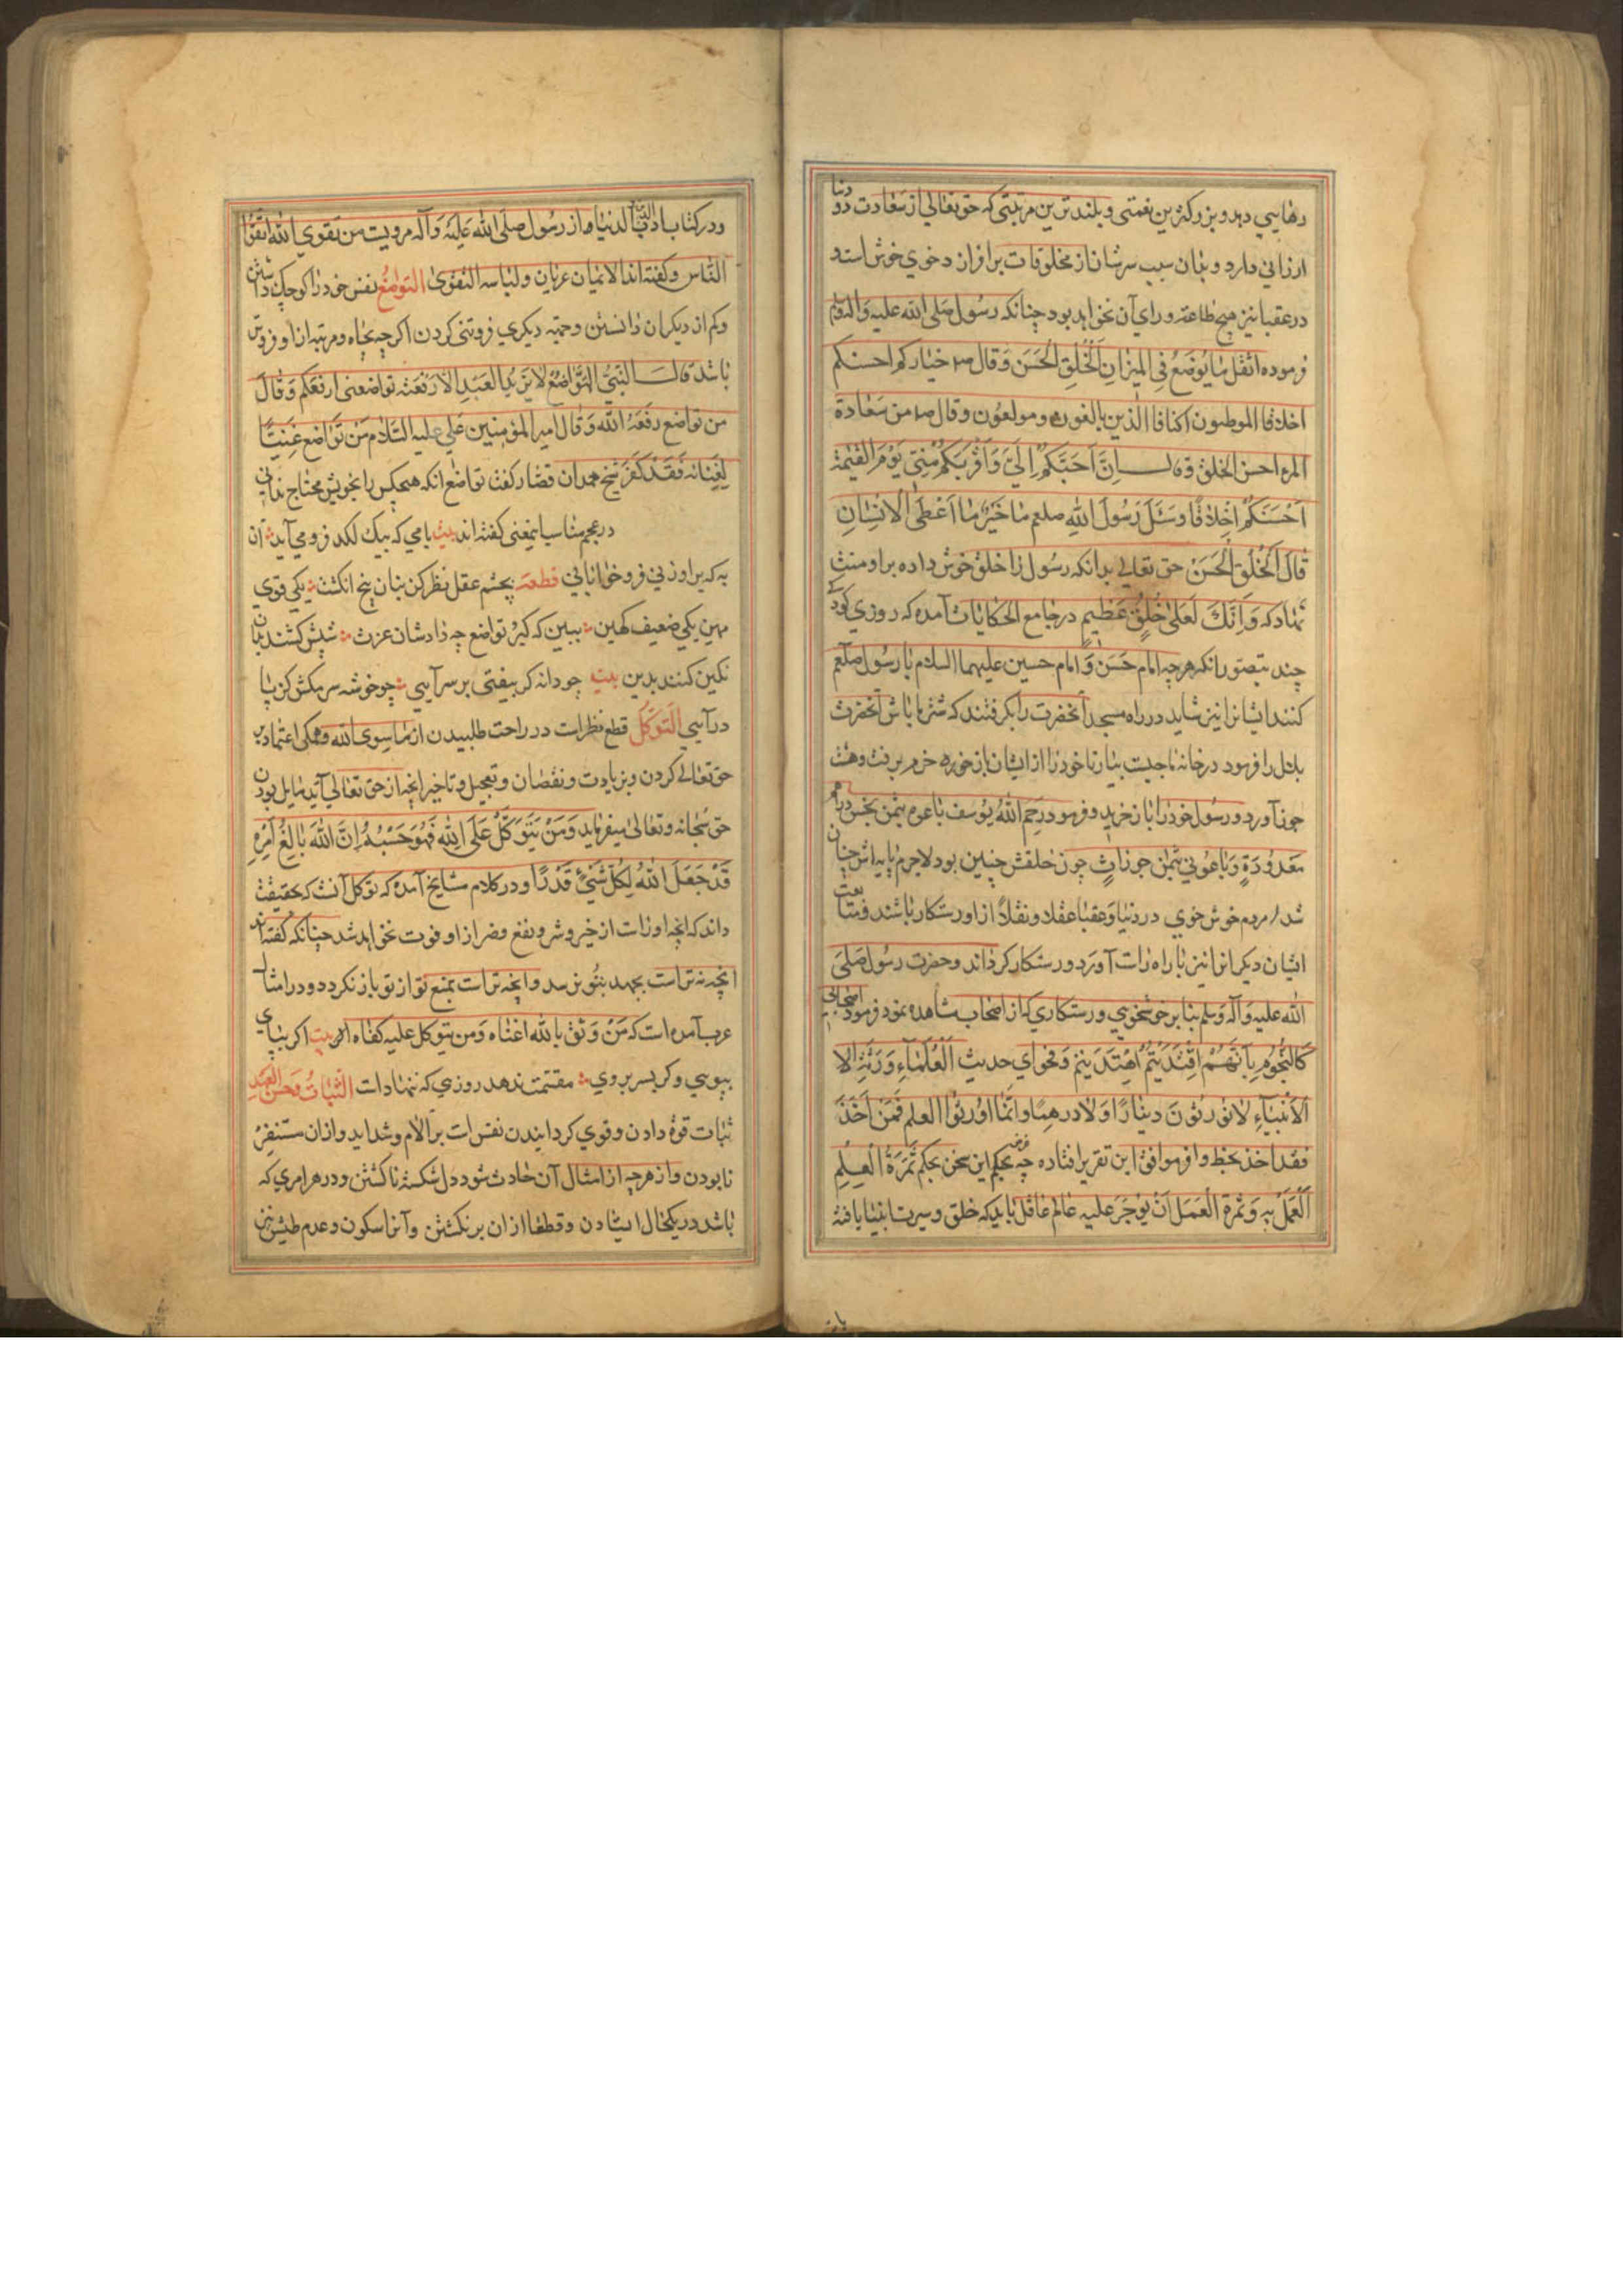 رهایی دهد و بزرگترین نعمتی و بلندترین مرتبتی که حق تعالی از سعادت دو دنیا
ارزانی دارد و بدان سبب سرشان از مخلوقات برافرازد خوی خوش است و
در عقبا نیز هیچ طاعته ورای آن نخواهد بود چنانکه رسول صلی الله علیه و آله وسلم
فرموده اثقل ما یوضع فی المیزان الخلق الحسن وقال ص خیارکم احسنکم
اخلاقا الموطنون اکنافا الذین یالفون و مولعون وقال ص من سعادة
المرء احسن الخلق وقال اِنَّ اَحَبَّکُمْ اِلَیَّ وَاَقْرَبَکُمْ مِنّی یَوْمَ القیٰمة
اَحْسَنَکُمْ اَخلاقًا وسَئَلَ رَسُولَ اللهِ صلعم ما خَیْرُ ما اَعْطَی الْاِنْسٰانِ
قالَ اَلْخُلْقُ الْحَسَنْ حق تعالی بدانکه رسول را خلق خوش داده بر او منت
نهاد که وَاِنَّکَ لَعَلیٰ خُلُقٍ عَظِیمٍ در جامع الحکایات آمده که روزی کودکی
چند بتصور انکه هرچه امام حَسَن وَ امام حسین علیهما السلام با رسول صلعم
کنند ایشانرا نیز شاید در راه مسجد آنحضرت را بگرفتند که شتر ما باش آنحضرت
بلال را فرمود در خانه ما چیست بیار تا خود را از ایشان باز خرم برفت و هشت
جوز آورد و رسول خود را باز خرید و فرمود رَحِمَ اللهُ یُوسُف باعوه بثمن بخس دراهم
مَعدُودَةٍ وَباعُونی بثمن جوزاتٍ چون خلقش چنین بود لاجرم پایه اش چنان
شد مردم خوش خوی در دنیا و عقبا عقلا و نقلاً از او رستکار باشند و متابعت
ایشان دیکرانرا نیز براه راست آورد و رستکار کرداند و حضرت رسول صَلی
الله علیه وَآله وَسلم بنابر خوشخویی و رستکاری که از اصحاب مشاهده نمود فرمود اصحابی
کَالنّجُومِ بِاَیِّهِمْ اِقْتَدَیْتُم اِهْتَدَیتم وَ فحوای حدیث اَلْعُلَمٰاءِ وَرَثَةِ الا
اَلاَنْبیٰاءِ لا نورثون دینارًا وَلا درهمًا وانما اورثوا العلم فَمَنْ اَخَذَ
فقد اخذ بحظ وافر موافق این تقریر افتاده چه بحکم این سخن بحکم ثَمَرَةُ الْعِلْمِ
اَلْعَمَلُ بِهِ وَثَمرة الْعَمَل اَنْ یُوجَرَ عَلیه عالم عاقل باید که خلق و سیرت انبیا یافته
ودر کتاب ادب الدنیا و الدین از رسول صلی الله علیه وآله مرویست من تقوی الله اتقوا
الناس و کفته اند الایمان عریان ولباسه التقوی التواضع نفس خود را کوچک داشتن
و کم از دیکران دانستن و جهته دیکری فروتنی کردن اکر چه بجاه و مرتبه از او فروتر
باشد قال النَّبیُّ التَّوٰاضُعُ لا یَزیدُ العَبْدَ الاّ رَفْعَة تواضعنی ارفعکم وَقالَ
من تواضع رَفَعَهُ الله وَقال امیر المؤمنین عَلی علیه السّلام مَن تَوٰاضَع غَنِیًّا
لِغِنائه فَقَدْ کَفَر شیخ حمدان قصار کفت تواضع انکه هیچکس را بخویش محتاج ندانی
در عجم مناسب اینمعنی کفته اند بیت بامی که بیک لکد فرو می آید آن
به که بر او زنی فروخوابانی قطعه بچشم عقل نظر کن بنان پنج انکشت یکی قوی
مهین یکی ضعیف کهین ببین که کبر و تواضع چه داد شان عزت
نکین کنند بدین بیت چو دانه کر بیفتی بر سر آیی چو خوشه سر مکش کز پا
در آیی التَّوَکُّل قطع نظر است در راحت طلبیدن از ما سوی الله و همکی اعتماد بر
حق تعالی کردن و بزیادت و نقصان و تعجیل و تاخیر انچه از حق تعالی آید مایل بودن
حق سُبحانه و تعالی میفرماید وَمَنْ یَتَوَکَّلْ عَلَی اللهِ فَهُوَ حَسْبُهُ اِنَّ اللهَ بالِغُ اَمْرِهِ
قَدْ جَعَلَ اللهُ لِکُلِّ شَیْءٍ قَدْرًا و در کلام مشایخ آمده که توکل آنست که حقیقت
داند که انچه او راست از خیر و شر و نفع و ضر از او فوت نخواهد شد چنانکه کفته اند
انچه نه تراست بجهد بتو نرسد و انچه تراست بمنع تو از تو باز نکردد و در امثال
عرب آمده است که مَنْ وَثِقَ بالله اغناه وَمن یتوکل علیه کفاه الله بیت اکر بپای
بپویی و کر بسر بروی مقسمت ندهد روزی که ننهاد است الثَّباتُ
ثبات قوة دادن و قوی کردانیدن نفس است بر آلام و شداید و از ان مستنفر
نا بودن و از هرچه از امثال آن حادث شود دل شکسته ناکشتن و در هر امری که
باشد در یکحال ایستادن و قطعا از ان برنکشتن وآنرا سکون و عدم طیش نیز